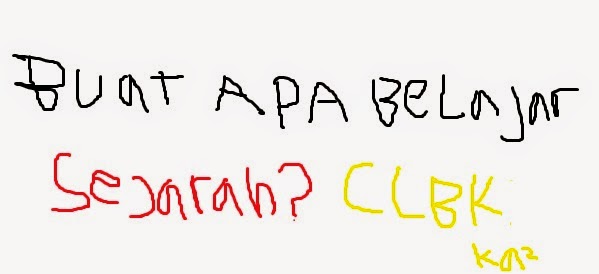 Buat APA Belajar
Sejarah? CLBK
Ka²